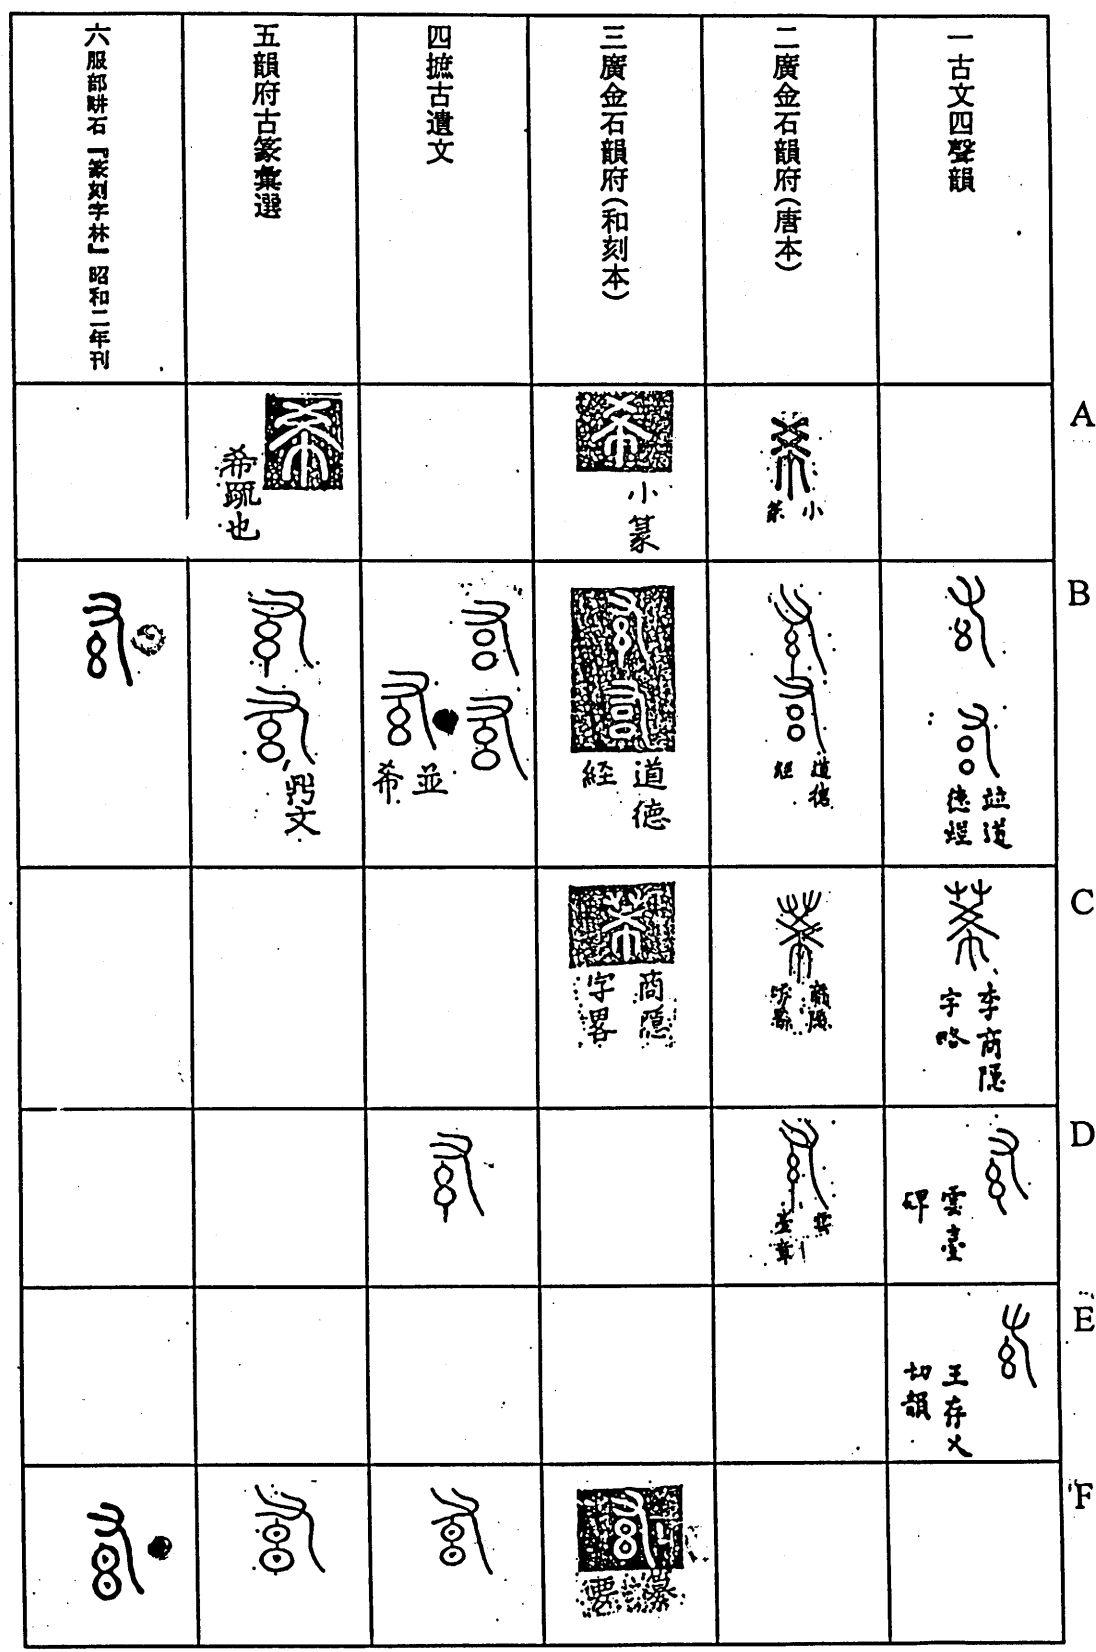 一古文四聲韻
二廣金石韻府(唐本)
三廣金石韻府(和刻本)
四摭古遺文
五韻府古篆彙選
六服部畊石『篆刻字林』昭和二年刊
A
小
篆
小篆
希䟽也
B
並道
德経
道德
経
道德
経
並
希
C
李商隠
字略
商隠
字畧
商隠
字畧
D
雲臺
碑
E
王存乂
切韻
F